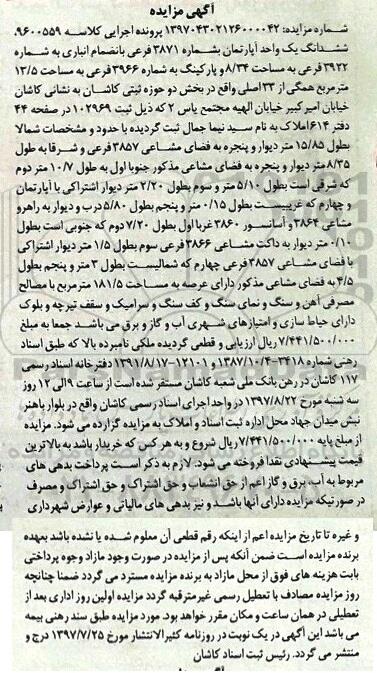 آگهی مزایده
شماره مزایده: ۱۳۹۷۰۴۳۰۲۱۲۶۰۰۰۰۴۲ پرونده اجرایی کلاسه ۹۶۰۰۵۵۹،
ششدانگ یک واحد آپارتمان بشماره ۳۸۷۱ فرعی بانضمام انباری به شماره
۳۹۲۲ فرعی به مساحت ۸/۳۴ و پارکینگ به شماره ۳۹۶۶ فرعی به مساحت ۱۲/۵
مترمربع همگی از ۳۳ اصلی واقع در بخش دو حوزه ثبتی کاشان به نشانی کاشان
خیابان امیرکبیر خیابان الهیه مجتمع یاس ۲ که ذیل ثبت ۱۰۲۹۶۹ در صفحه ۴۴
دفتر ۶۱۴ املاک به نام سید نیما جمال ثبت گردیده با حدود و مشخصات شمالا
بطول ۱۵/۸۵ متر دیوار و پنجره به فضای مشاعی ۳۸۵۷ فرعی و شرقا به طول
۸/۳۵ متر دیوار و پنجره به فضای مشاعی مذکور جنوبا اول به طول ۱۰/۷ متر دوم
که شرقی است بطول ۵/۱۰ متر و سوم بطول ۲/۲۰ متر دیوار اشتراکی با آپارتمان
و چهارم که غربیست بطول ۰/۱۵ متر و پنجم بطول ۵/۸۰ درب و دیوار به راهرو
مشاعی ۳۸۶۴ و آسانسور ۳۸۶۰ غربا اول بطول ۷/۲۰ دوم که جنوبی است بطول
۰/۱۰ متر دیوار به داکت مشاعی ۳۸۶۶ فرعی سوم بطول ۱/۵ متر دیوار اشتراکی
با فضای مشاعی ۳۸۵۷ فرعی چهارم که شمالیست بطول ۳ متر و پنجم بطول
۴/۵ به فضای مشاعی مذکور دارای عرصه به مساحت ۱۸۱/۵ مترمربع با مصالح
مصرفی آهن و سنگ و نمای سنگ و کف سنگ و سرامیک و سقف تیرچه و بلوک
دارای حیاط سازی و امتیازهای شهری آب و گاز و برق می باشد جمعا به مبلغ
۷/۴۴۱/۵۰۰/۰۰۰ ریال ارزیابی و قطعی گردیده ملکی نامبرده بالا که طبق اسناد
رهنی شماره ۳۴۱۸-۱۳۸۷/۱۰/۴ و ۱۲۱۰۱-۱۳۹۱/۸/۱۷ دفترخانه اسناد رسمی
۱۱۷ کاشان در رهن بانک ملی شعبه کاشان مستقر شده است از ساعت ۹ الی ۱۲ روز
سه شنبه مورخ ۱۳۹۷/۸/۲۲ در واحد اجرای اسناد رسمی کاشان واقع در بلوار باهنر
نبش میدان جهاد محل اداره ثبت اسناد و املاک به مزایده گزارده می شود. مزایده
از مبلغ پایه ۷/۴۴۱/۵۰۰/۰۰۰ ریال شروع و به هر کس که خریدار باشد به بالاترین
قیمت پیشنهادی نقدا فروخته می شود. لازم به ذکر است پرداخت بدهی های
مربوط به آب، برق و گاز اعم از حق انشعاب و حق اشتراک و حق اشتراک و مصرف
در صورتیکه مزایده دارای آنها باشد و نیز بدهی های مالیاتی و عوارض شهرداری
و غیره تا تاریخ مزایده اعم از اینکه رقم قطعی آن معلوم شده یا نشده باشد بعهده
برنده مزایده است ضمن آنکه پس از مزایده در صورت وجود مازاد وجوه پرداختی
بابت هزینه های فوق از محل مازاد به برنده مزایده مسترد می گردد ضمنا چنانچه
روز مزایده مصادف با تعطیل رسمی غیرمترقبه گردد مزایده اولین روز اداری بعد از
تعطیلی در همان ساعت و مکان مقرر خواهد بود. مورد مزایده طبق سند رهنی بیمه
می باشد این آگهی در یک نوبت در روزنامه کثیرالانتشار مورخ ۱۳۹۷/۷/۲۵ درج و
منتشر می گردد. رئیس ثبت اسناد کاشان